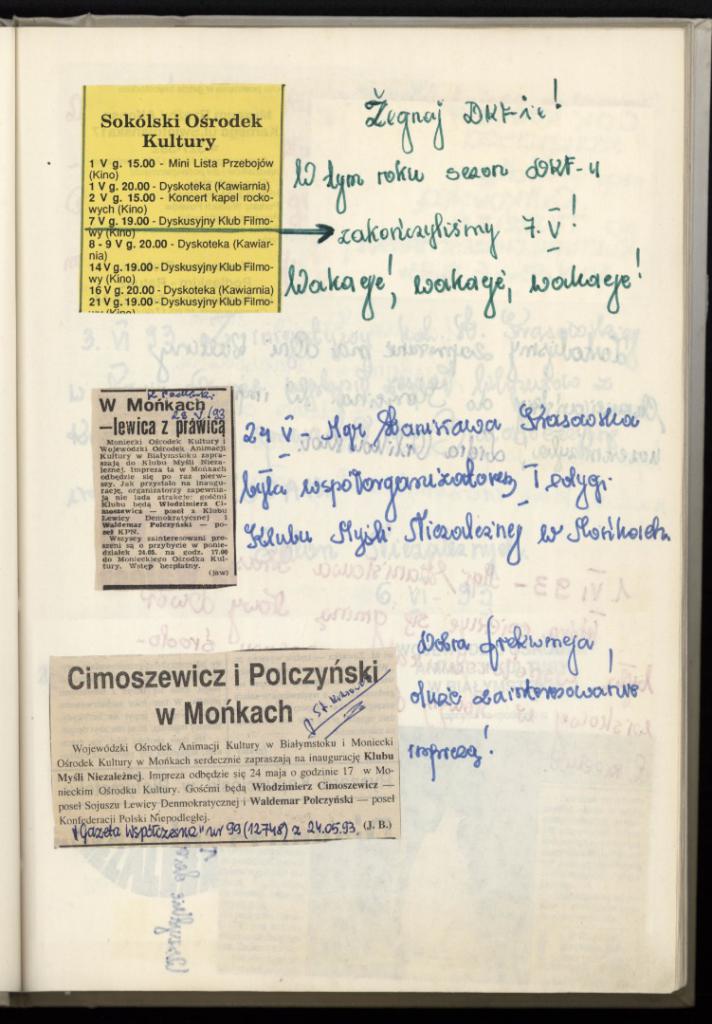 Sokólski Ośrodek
Kultury
1 V g. 15.00 - Mini Lista Przebojów
(Kino)
1 V g. 20.00 - Dyskoteka (Kawiarnia)
2 V g. 15.00 - Koncert kapel rocko-
wych (Kino)
7 V g. 19.00 - Dyskusyjny Klub Filmo-
wy (Kino)
8 - 9 V g. 20.00 - Dyskoteka (Kawiar-
nia)
14 V g. 19.00 - Dyskusyjny Klub Filmo-
wy (Kino)
16 V g. 20.00 - Dyskoteka (Kawiarnia)
21 V g. 19.00 - Dyskusyjny Klub Filmo-
wy (Kino)
Żegnaj DKF-ie!
W tym roku sezon DKF-u
zakończyliśmy 7. V!
Wakacje!, wakacje, wakacje!
W Mońkach
—lewica z prawicą
Moniecki Ośrodek Kultury i
Wojewódzki Ośrodek Animacji
Kultury w Białymstoku zapra-
szają do Klubu Myśli Nieza-
leżnej. Impreza ta w Mońkach
odbędzie się po raz pierw-
szy. Jak przystało na inaugu-
rację, organizatorzy zapewnia-
ją nie lada atrakcje: gośćmi
Klubu będą Włodzimierz Ci-
moszewicz — poseł z Klubu
Lewicy Demokratycznej i
Waldemar Polczyński — po-
seł KPN.
Wszyscy zainteresowani pro-
szeni są o przybycie w ponie-
działek 24.05. na godz. 17.00
do Monieckiego Ośrodka Kul-
tury. Wstęp bezpłatny.
(jaw)
24 V - Mgr Stanisława Krasowska
była współorganizatorem I edycji
Klubu Myśli Niezależnej w Mońkach
Cimoszewicz i Polczyński
w Mońkach
Wojewódzki Ośrodek Animacji Kultury w Białymstoku i Moniecki
Ośrodek Kultury w Mońkach serdecznie zapraszają na inaugurację Klubu
Myśli Niezależnej. Impreza odbędzie się 24 maja o godzinie 17 w Mo-
nieckim Ośrodku Kultury. Gośćmi będą Włodzimierz Cimoszewicz —
poseł Sojuszu Lewicy Denmokratycznej i Waldemar Polczyński — poseł
Konfederacji Polski Niepodległej.
(J. B.)
"Gazeta Współczesna" nr 99 (12748) z 24.05.93
Dobra frekwencja,
duże zainteresowanie
imprezą!